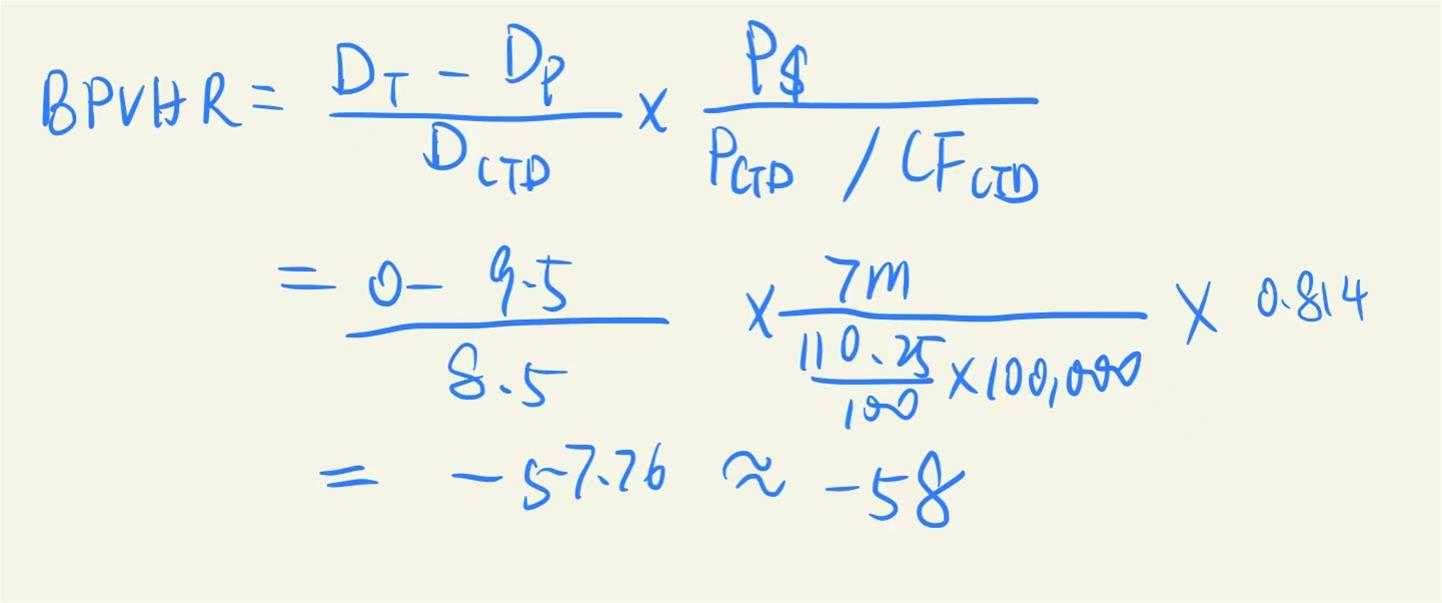 BPVHR = (D_T - D_P) / D_CTD × P$ / (P_CTD / CF_CTD)
= (0 - 9.5) / 8.5 × 7m / (110.25/100 × 100,000) × 0.814
= -57.76 ≈ -58